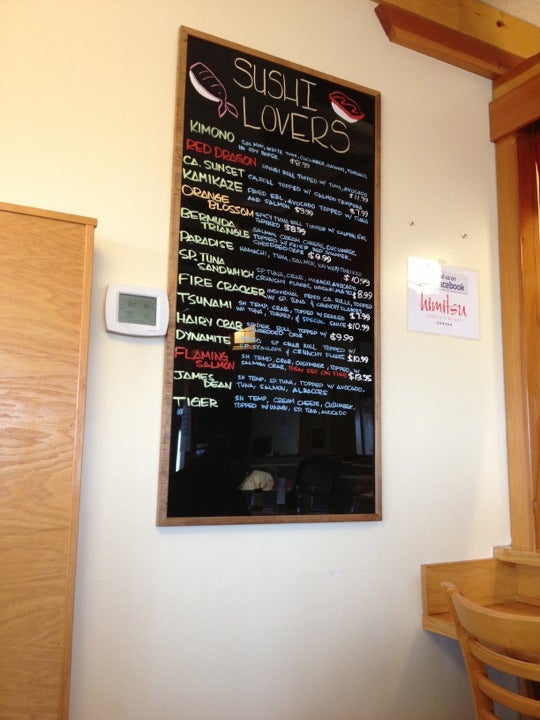 SUSHI
LOVERS
KIMONO SALMON, WHITE TUNA, CUCUMBER,
IN SOY PAPER. $8.99
RED DRAGON UNAGI ROLL TOPPED W/ TUNA, AVOCADO
$11.99
CA. SUNSET CA. ROLL TOPPED W/ SALMON TEMPURA
$7.99
KAMIKAZE FRIED EEL, AVOCADO TOPPED W/ TUNA
AND SALMON $9.99
ORANGE
BLOSSOM SPICY TUNA ROLL TOPPED W/ SALMON
$8.99
BERMUDA
TRIANGLE SALMON, CREAM CHEESE, CUCUMBER,
TOPPED W/ FRIED RED SNAPPER,
SHREDDED CRAB $9.99
PARADISE HAMACHI, TUNA, SALMON,
$10.99
SP. TUNA
SANDWICH SP. TUNA, CRAB, AVOCADO,
CRUNCHY FLAKES, $8.99
FIRE CRACKER INDIVIDUAL FRIED CA. ROLLS, TOPPED
W/ SP. TUNA & CRUNCHY FLAKES
$7.99
TSUNAMI SH TEMP, CRAB, TOPPED W/ SEARED
TUNA, & SPECIAL SAUCE $10.99
HAIRY CRAB SPIDER ROLL TOPPED W/
SHREDDED CRAB $9.99
DYNAMITE SP CRAB ROLL TOPPED W/
SP SCALLOPS & CRUNCHY FLAKES $10.99
FLAMING
SALMON SH TEMP, CRAB, CUCUMBER, TOPPED W/
SALMON, CRAB, THEN SET ON FIRE $13.95
JAMES
DEAN SH TEMP, SP. TUNA, TOPPED W/ AVOCADO,
TUNA, SALMON, ALBACORE
TIGER SH TEMP, CREAM CHEESE, CUCUMBER.
TOPPED W/ UNAGI, SP. TUNA, AVOCADO
us on
facebook
himitsu